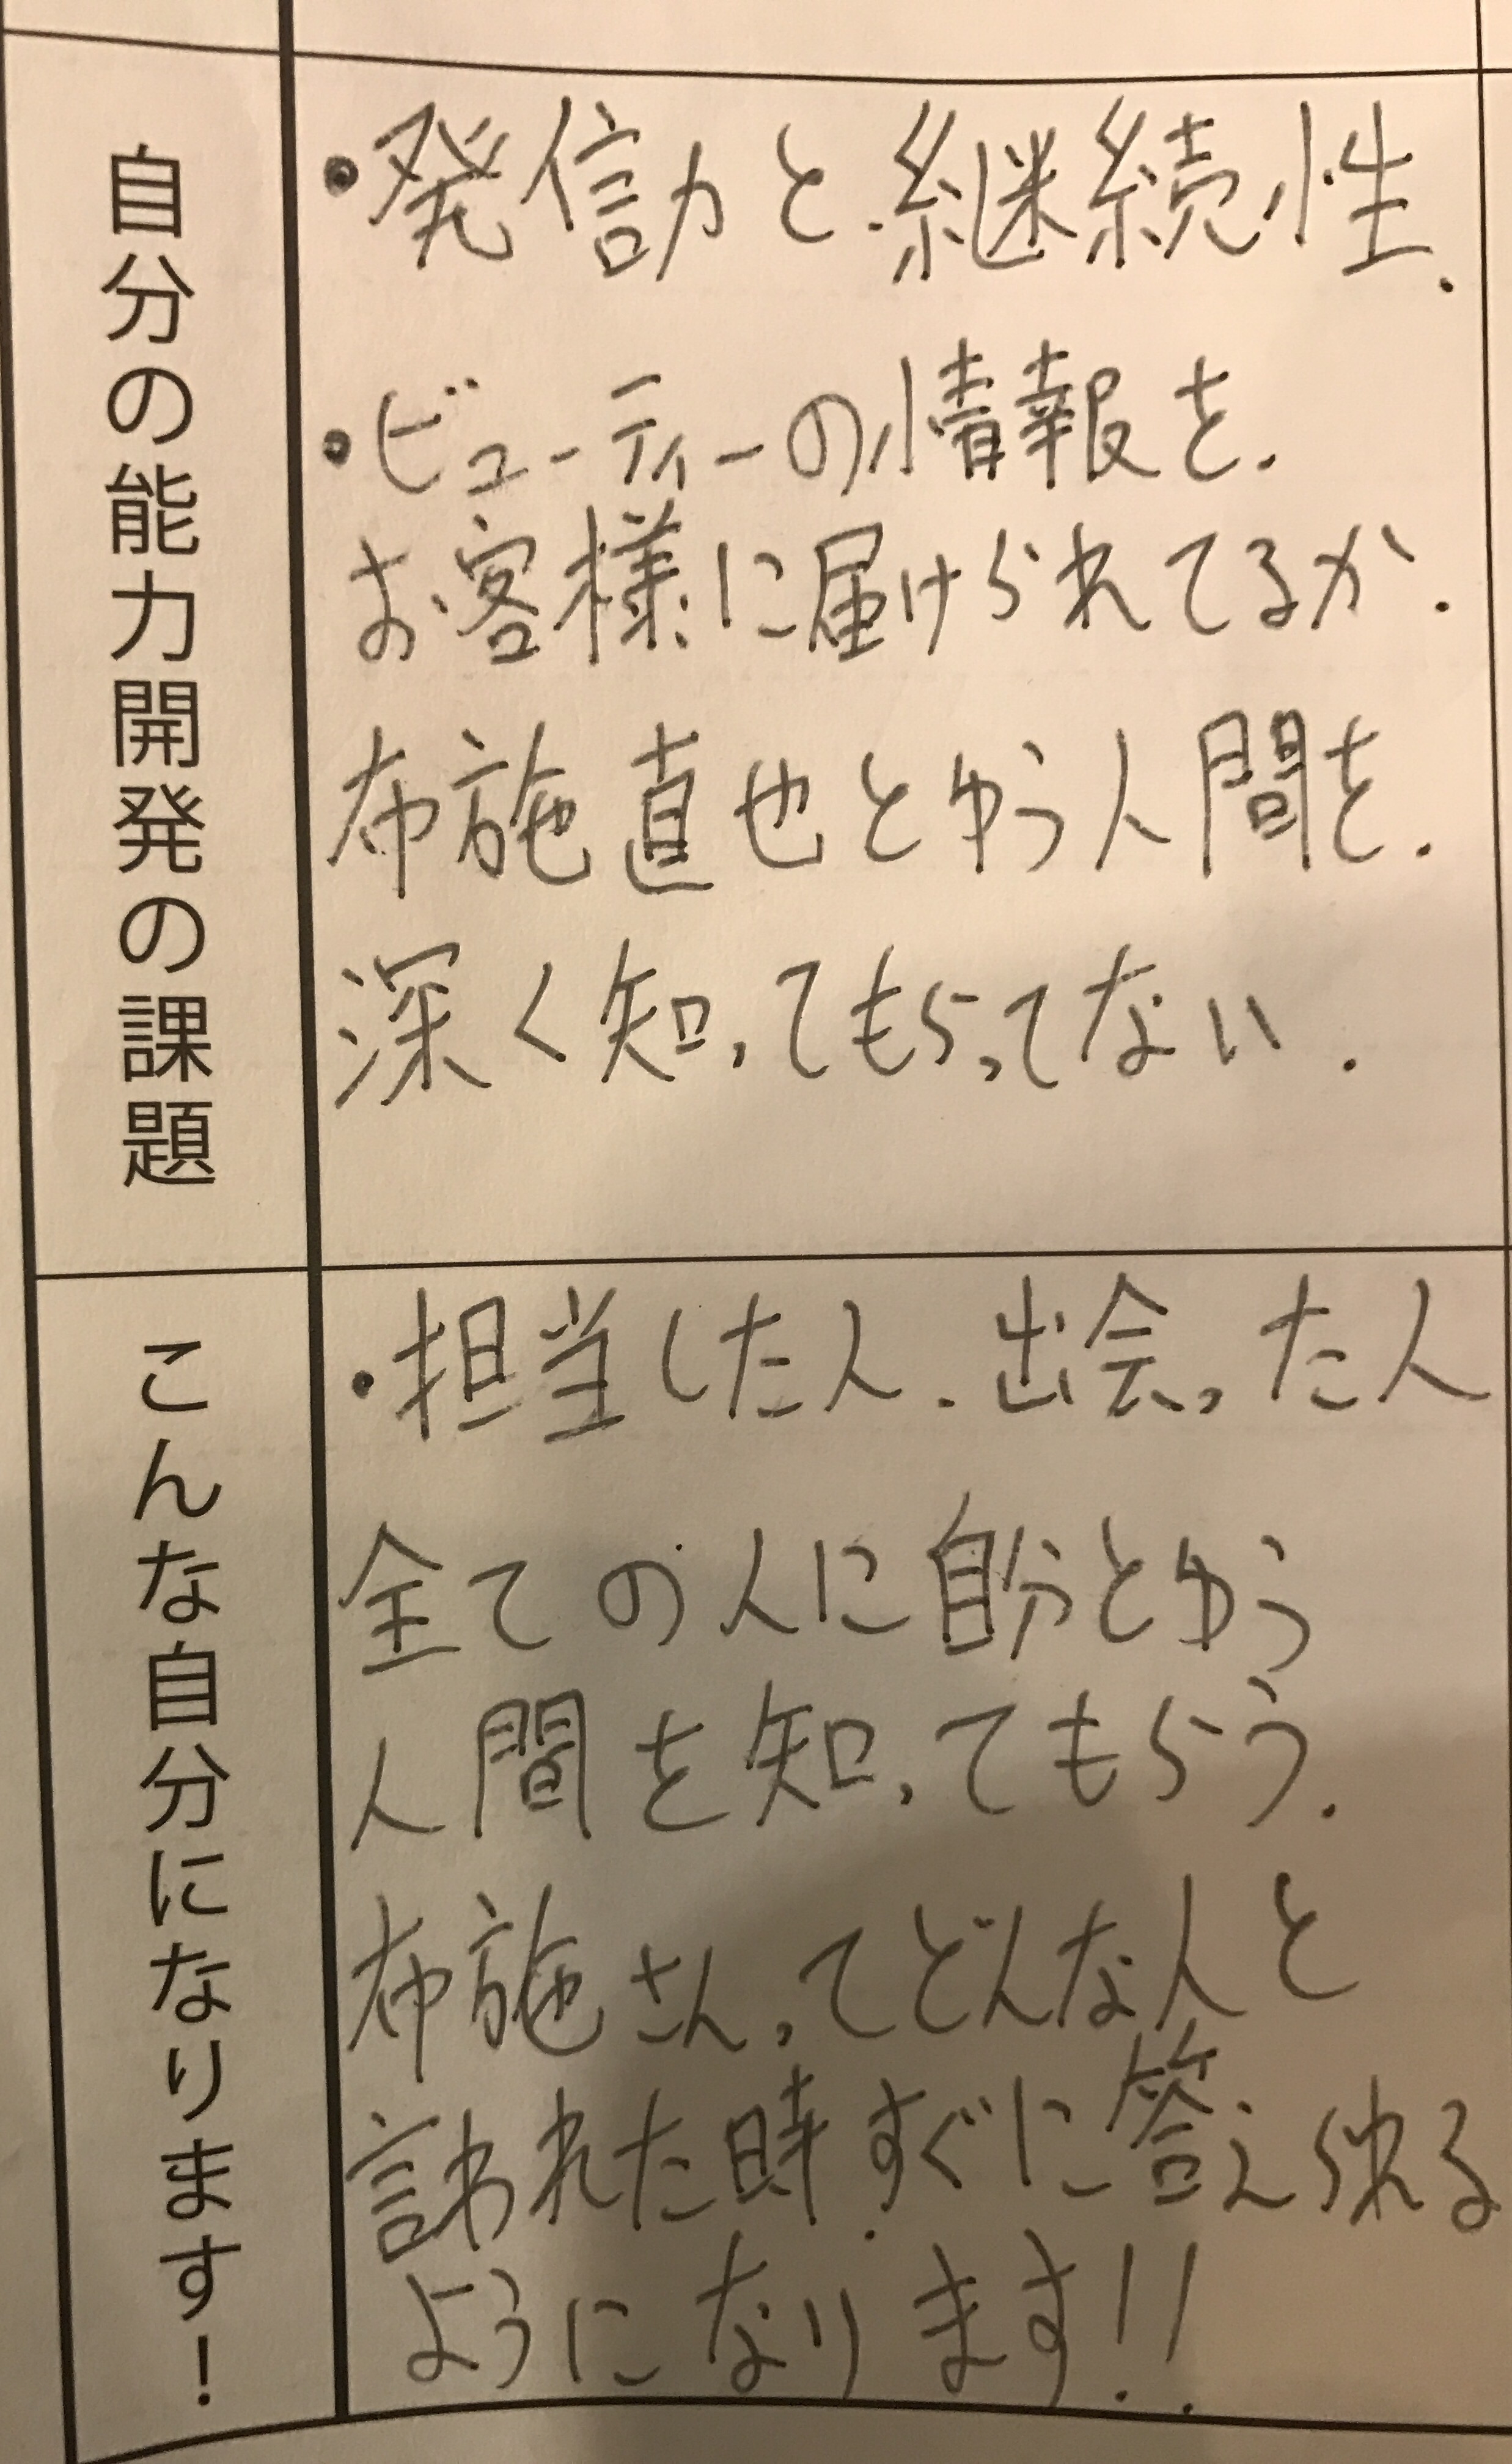 自分の能力開発の課題
・発信力と継続性.
・ビューティーの情報を.
お客様に届けられてるか.
布施直也とゆう人間を.
深く知ってもらってない.
こんな自分になります!
・担当した人.出会った人
全ての人に自分とゆう
人間を知ってもらう.
布施さんってどんな人と
言われた時すぐに答えられる
ようになります!!